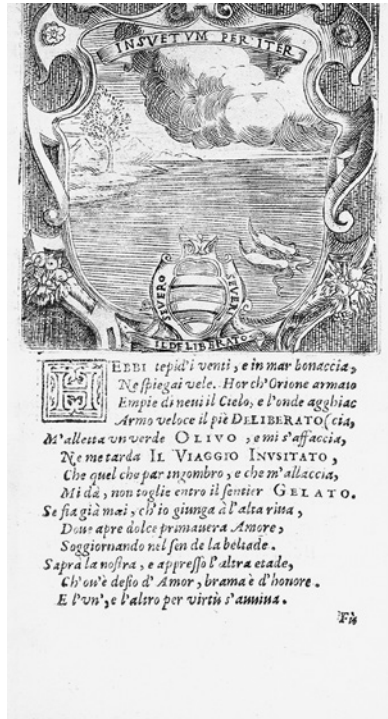 INSVETVM PER ITER
SEVERO SEVERI
IL DELIBERATO
HEBBI tepid'i venti, e in mar bonaccia,
Ne spiegai vele. Hor ch'Orione armato
Empie di neui il Cielo, e l'onde agghiac
Armo veloce il piè DELIBERATO (cia,
M'alletta vn verde OLIVO, e mi s'affaccia,
Ne me tarda IL VIAGGIO INVSITATO,
Che quel che par ingombro, e che m'allaccia,
Mi dà, non toglie entro il sentier GELATO.
Se fia già mai, ch'io giunga à l'alta riua,
Doue apre dolce primauera Amore,
Soggiornando nel sen de la beltade.
Saprà la nostra, e appresso l'altra etade,
Ch'ou'è desio d'Amor, brama è d'honore.
E l'vn', e l'altro per virtù s'auuiua.
Fù